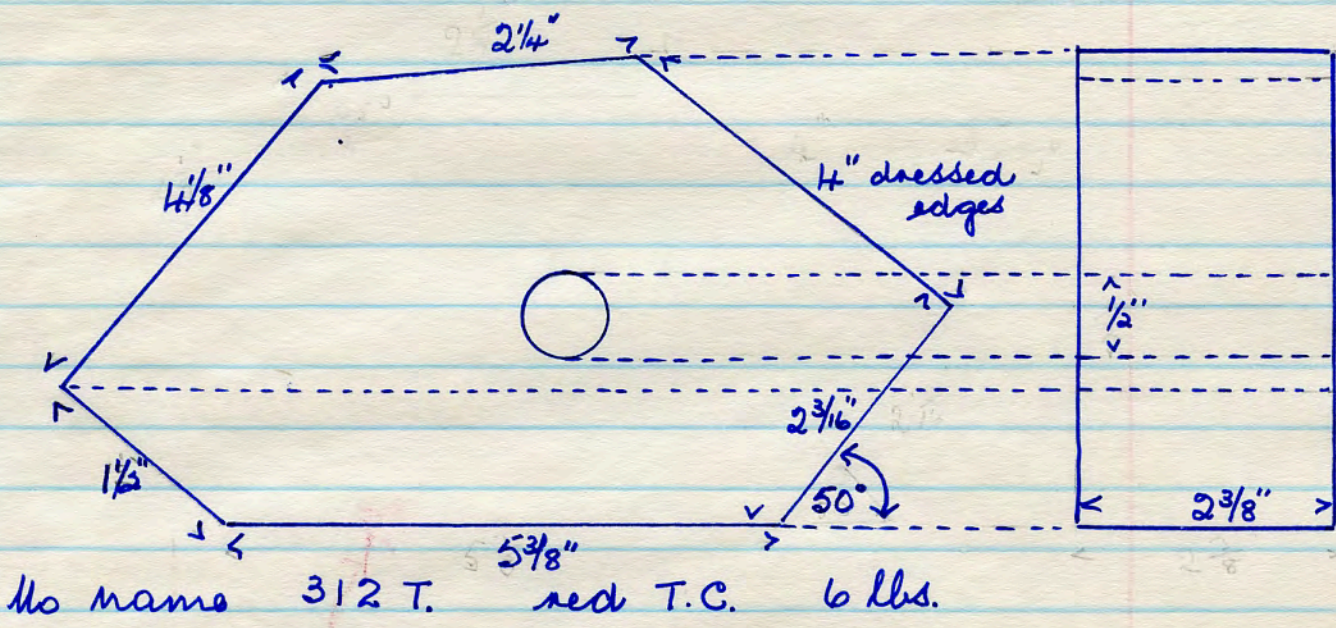 2 1/4"
4 1/8"
4" dressed
edges
1/2"
2 3/16"
50°
2 3/8"
5 3/8"
No name 312 T. red T.C. 6 lbs.